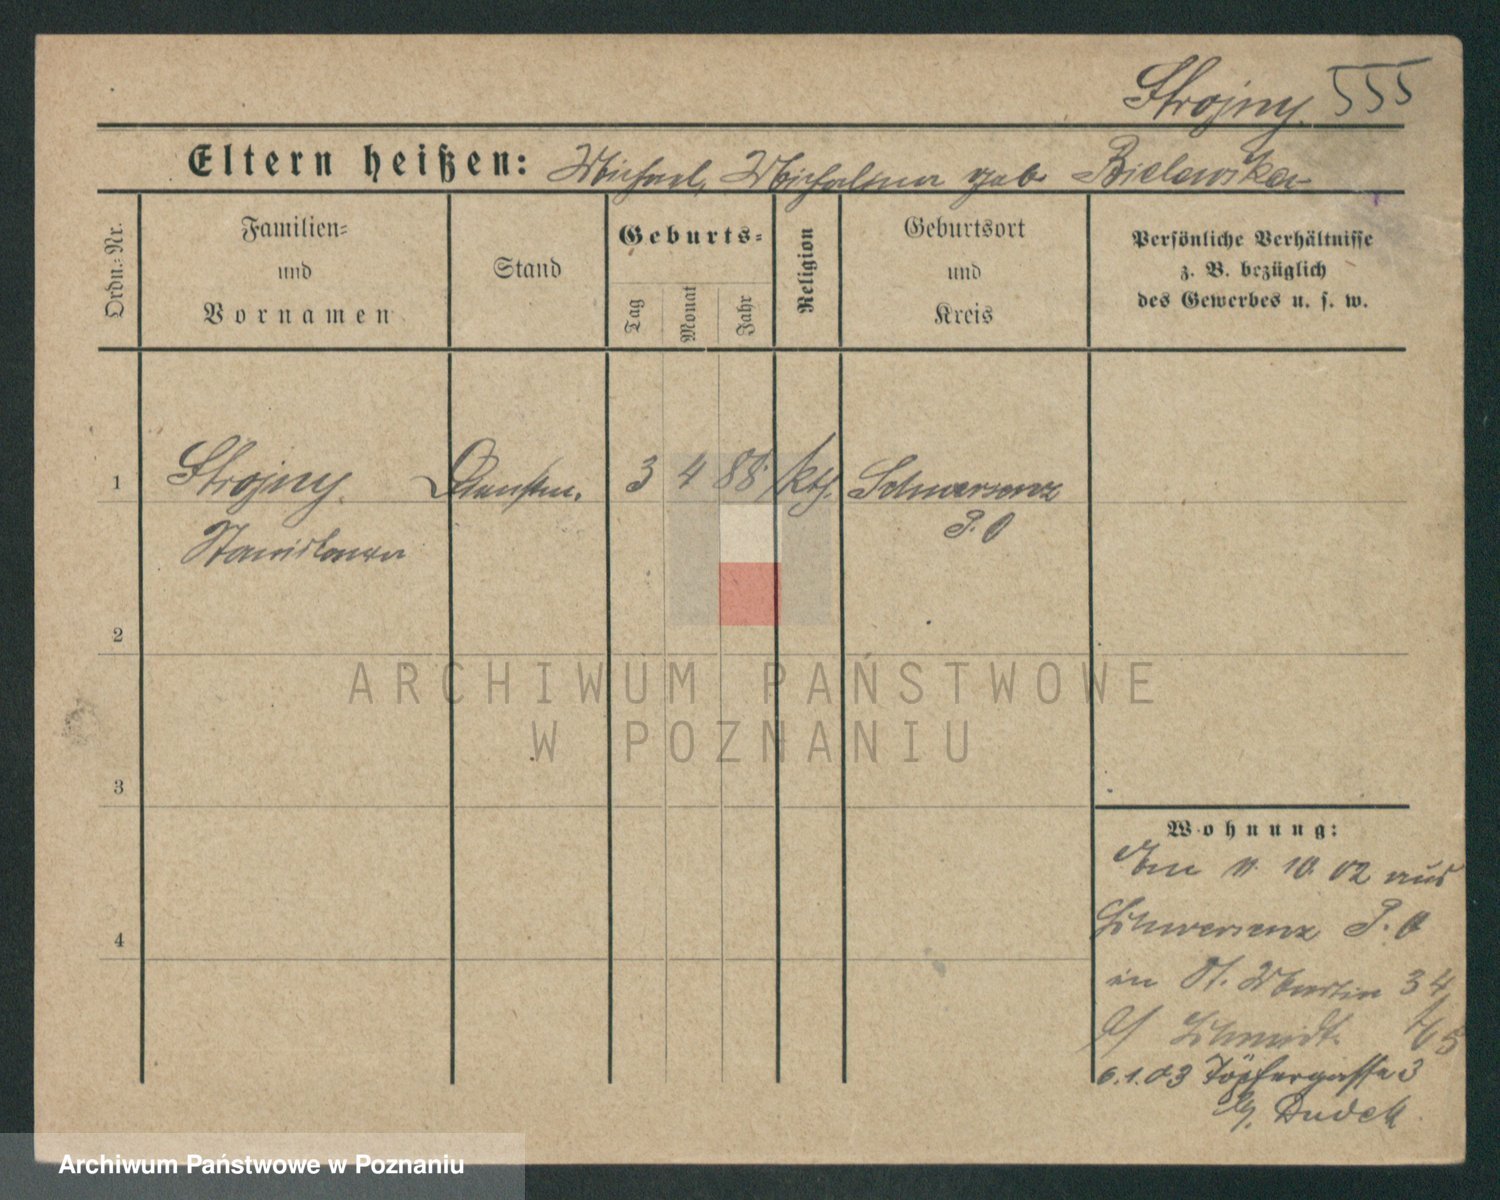 Strojny 555
Eltern heißen: Michael, Michalina geb. Bielawska
Ordn.=Nr.
Familien=
und
Vornamen
Stand
Geburts=
Tag
Monat
Jahr
Religion
Geburtsort
und
Kreis
Persönliche Verhältnisse
z. B. bezüglich
des Gewerbes u. s. w.
1 Strojny Dienstm. 3 4 88 kth. Schwersenz
Stanislawa P. O
2
3
4
Wohnung:
Am 11. 10. 02 aus
Schwersenz P. O
in St. Martin 34
b/ Schmidt.
6.1.03 Töpfergasse 3
b/. Dudek
ARCHIWUM PAŃSTWOWE
W POZNANIU
Archiwum Państwowe w Poznaniu